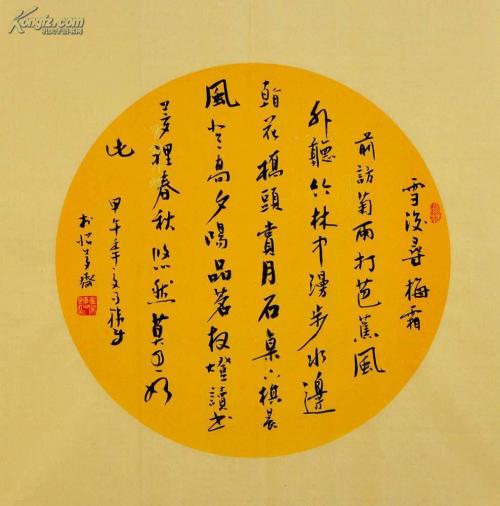 Kongfz.com
孔夫子旧书网
雪後尋梅霜
前訪菊雨打芭蕉風
外聽竹林中漫步水邊
花橋頭賞月石桌下棋晨
風登高夕陽品茗夜燈讀書
裡春秋悠然莫過如
此
甲午年夏月
於怡齋